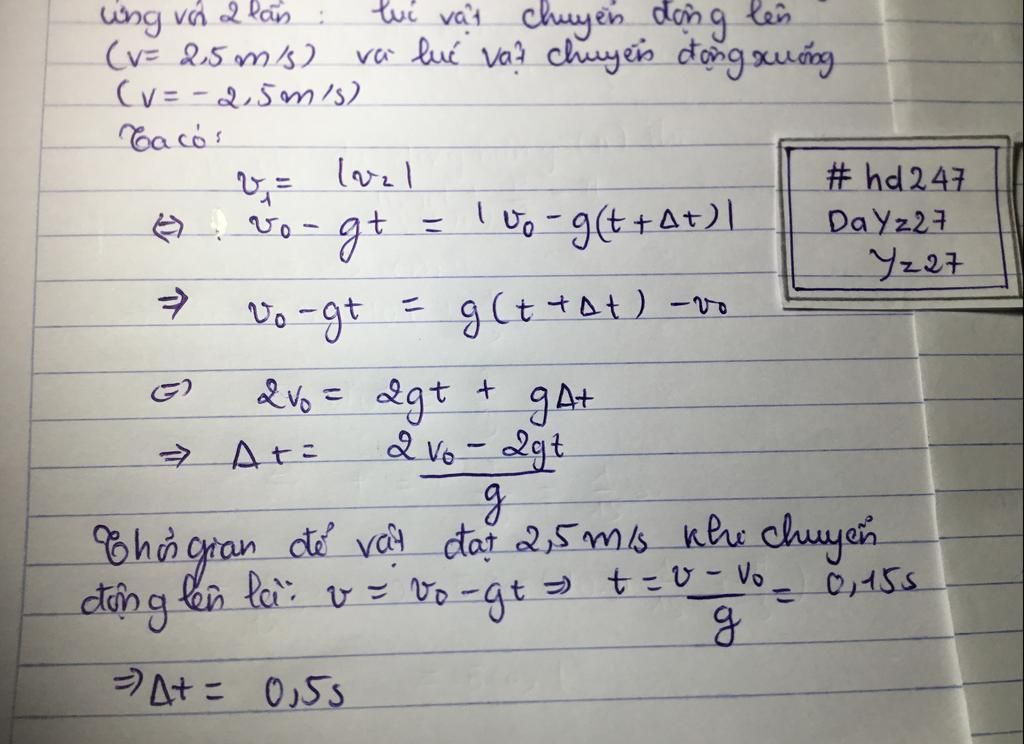 ứng với 2 lần : lúc vật chuyển động lên
(v= 2,5m/s) và lúc vật chuyển động xuống
(v = -2,5m/s)
Ta có:
v₁ = |v₂|
⇔ v₀ - gt = |v₀ - g(t + Δt)|
⇒ v₀ - gt = g(t + Δt) - v₀
⇔ 2v₀ = 2gt + gΔt
⇒ Δt = (2v₀ - 2gt)/g
Thời gian để vật đạt 2,5m/s khi chuyển
động lên là: v = v₀ - gt ⇒ t = (v - v₀)/g = 0,15s
⇒ Δt = 0,5s
# hd247
DaYz27
Yz27